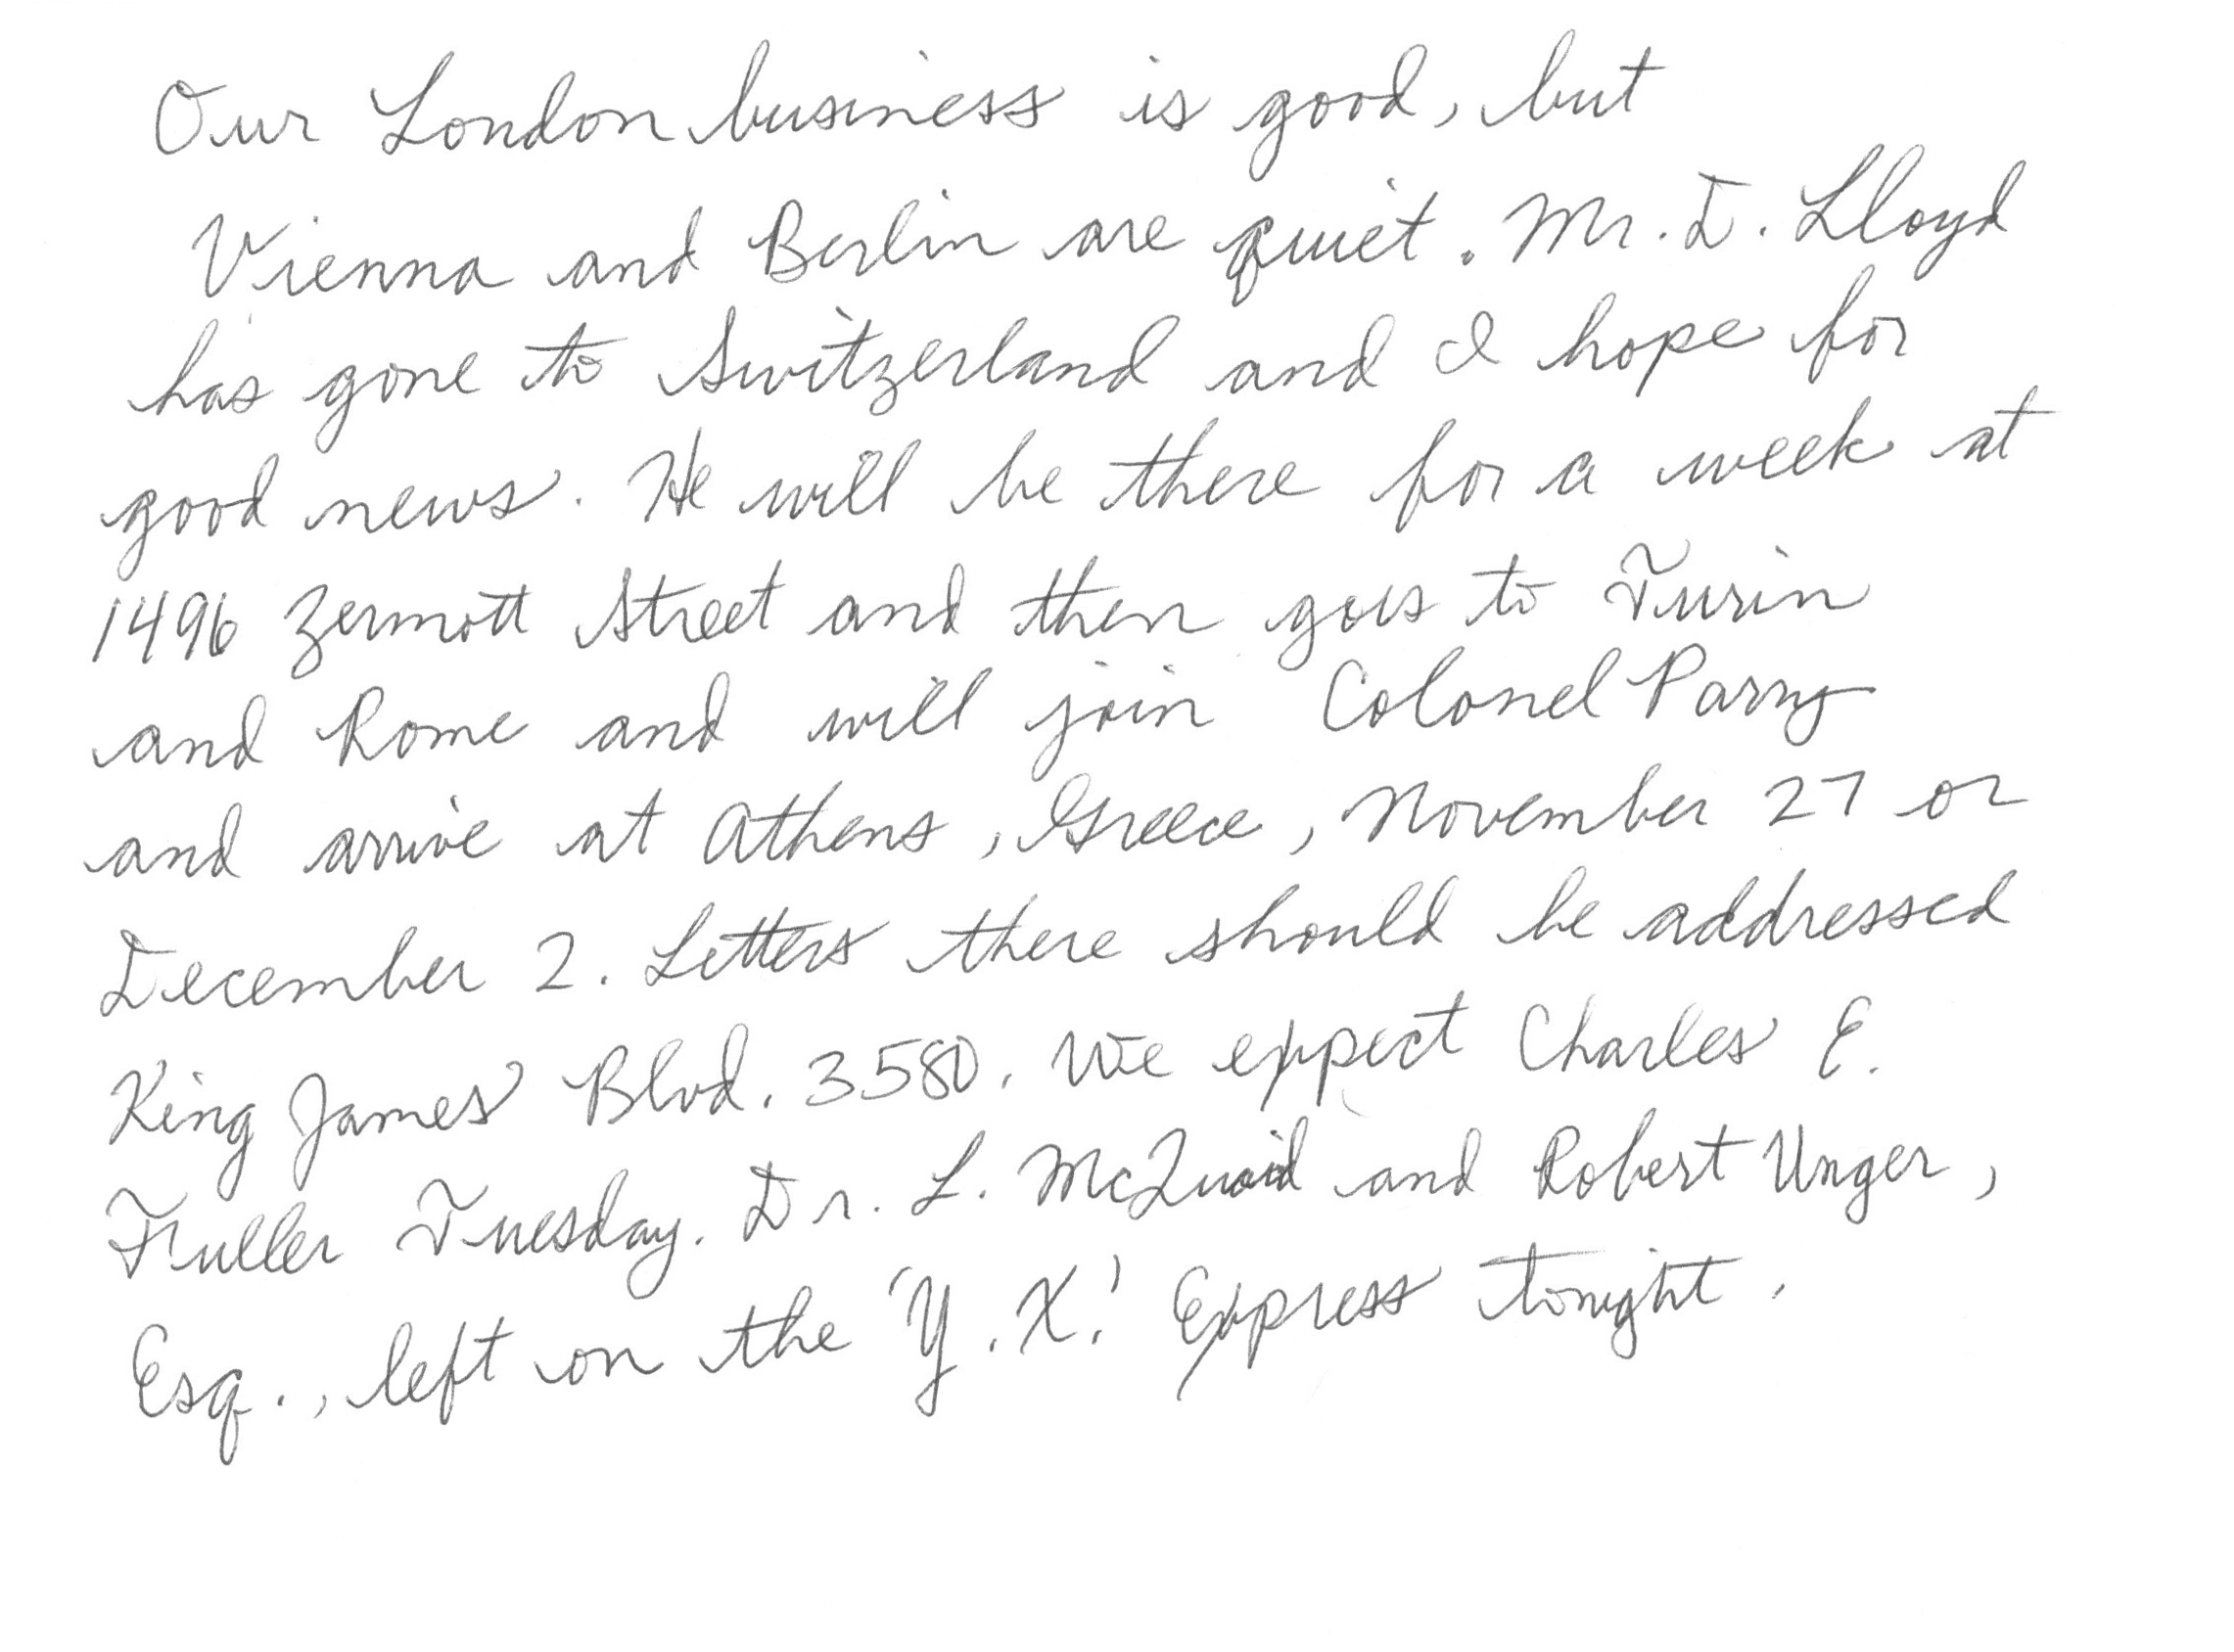 Our London business is good, but
Vienna and Berlin are quiet. Mr. D. Lloyd
has gone to Switzerland and I hope for
good news. He will be there for a week at
1496 Zermott Street and then goes to Turin
and Rome and will join Colonel Parry
and arrive at Athens, Greece, November 27 or
December 2. Letters there should be addressed
King James Blvd. 3580. We expect Charles E.
Fuller Tuesday. Dr. L. McQuaid and Robert Unger,
Esq., left on the 'Y.X.' Express tonight.